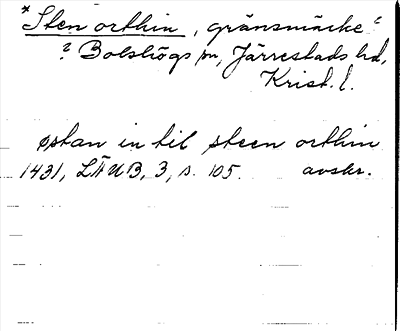 *Sten orthin, gränsmärke?
? Bolshögs sn, Järrestads hd,
Krist. l.
østan in til steen orthin
1431, LÄUB, 3, s. 105. avskr.